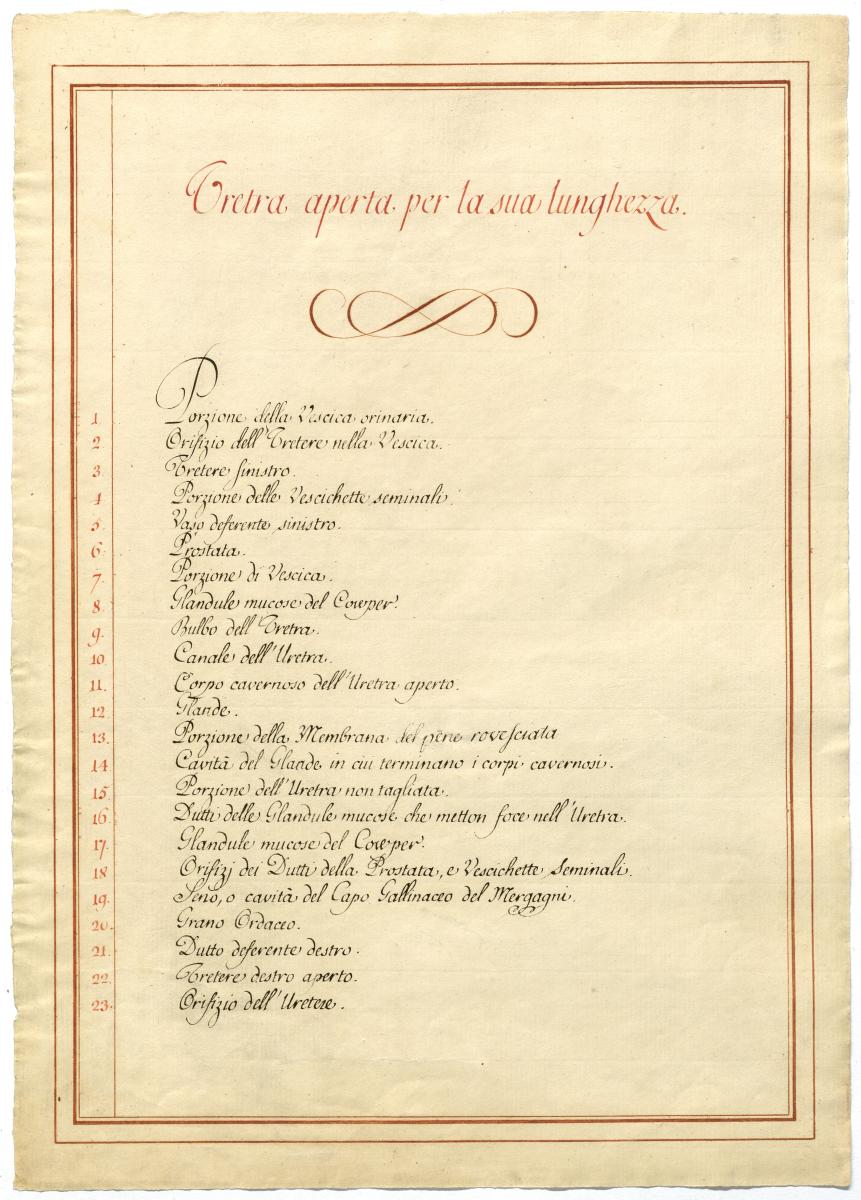 Uretra aperta per la sua lunghezza.
1. Porzione della Vescica orinaria.
2 Orifizio dell'Uretere nella Vescica.
3. Uretere sinistro.
4 Porzione delle Vescichette seminali.
5. Vaso deferente sinistro.
6. Prostata.
7. Porzione di Vescica.
8. Glandule mucose del Cowper.
9. Bulbo dell'Uretra.
10. Canale dell'Uretra.
11. Corpo cavernoso dell'Uretra aperto.
12 Glande.
13. Porzione della Membrana del pene rovesciata
14. Cavità del Glande in cui terminano i corpi cavernosi.
15. Porzione dell'Uretra non tagliata.
16. Dutti delle Glandule mucose che metton foce nell'Uretra.
17. Glandule mucose del Cowper.
18 Orifizj dei Dutti della Prostata, e Vescichette Seminali.
19. Seno, o cavità del Capo Gallinaceo del Mergagni.
20. Grano Ordaceo.
21. Dutto deferente destro.
22. Uretere destro aperto.
23. Orifizio dell'Uretere.